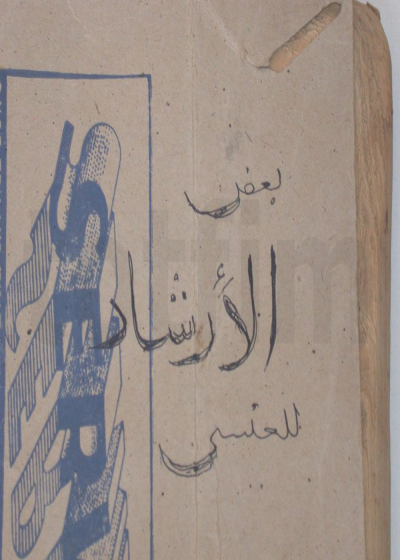 بعض
الأرشاد
للعنسي
SERI